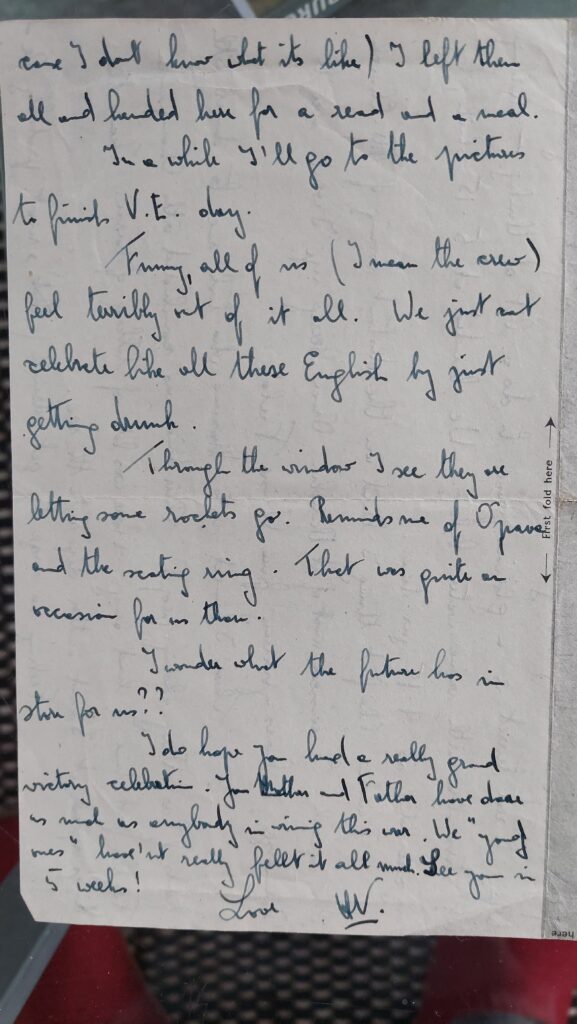 case I don't know what its like) I left them
all and headed here for a read and a meal.
In a while I'll go to the pictures
to finish V.E. day.
Funny, all of us (I mean the crew)
feel terribly out of it all. We just cant
celebrate like all these English by just
getting drunk.
Through the window I see they are
letting some rockets go. Reminds me of
and the scating ring. That was quite an
occasion for us then.
I wonder what the future has in
store for us??
I do hope you had a really grand
victory celebration. You Mother and Father have done
as much as anybody in wining this war. We "young
ones" have'nt really fellt it all much. See you in
5 weeks!
Love
First fold here
here